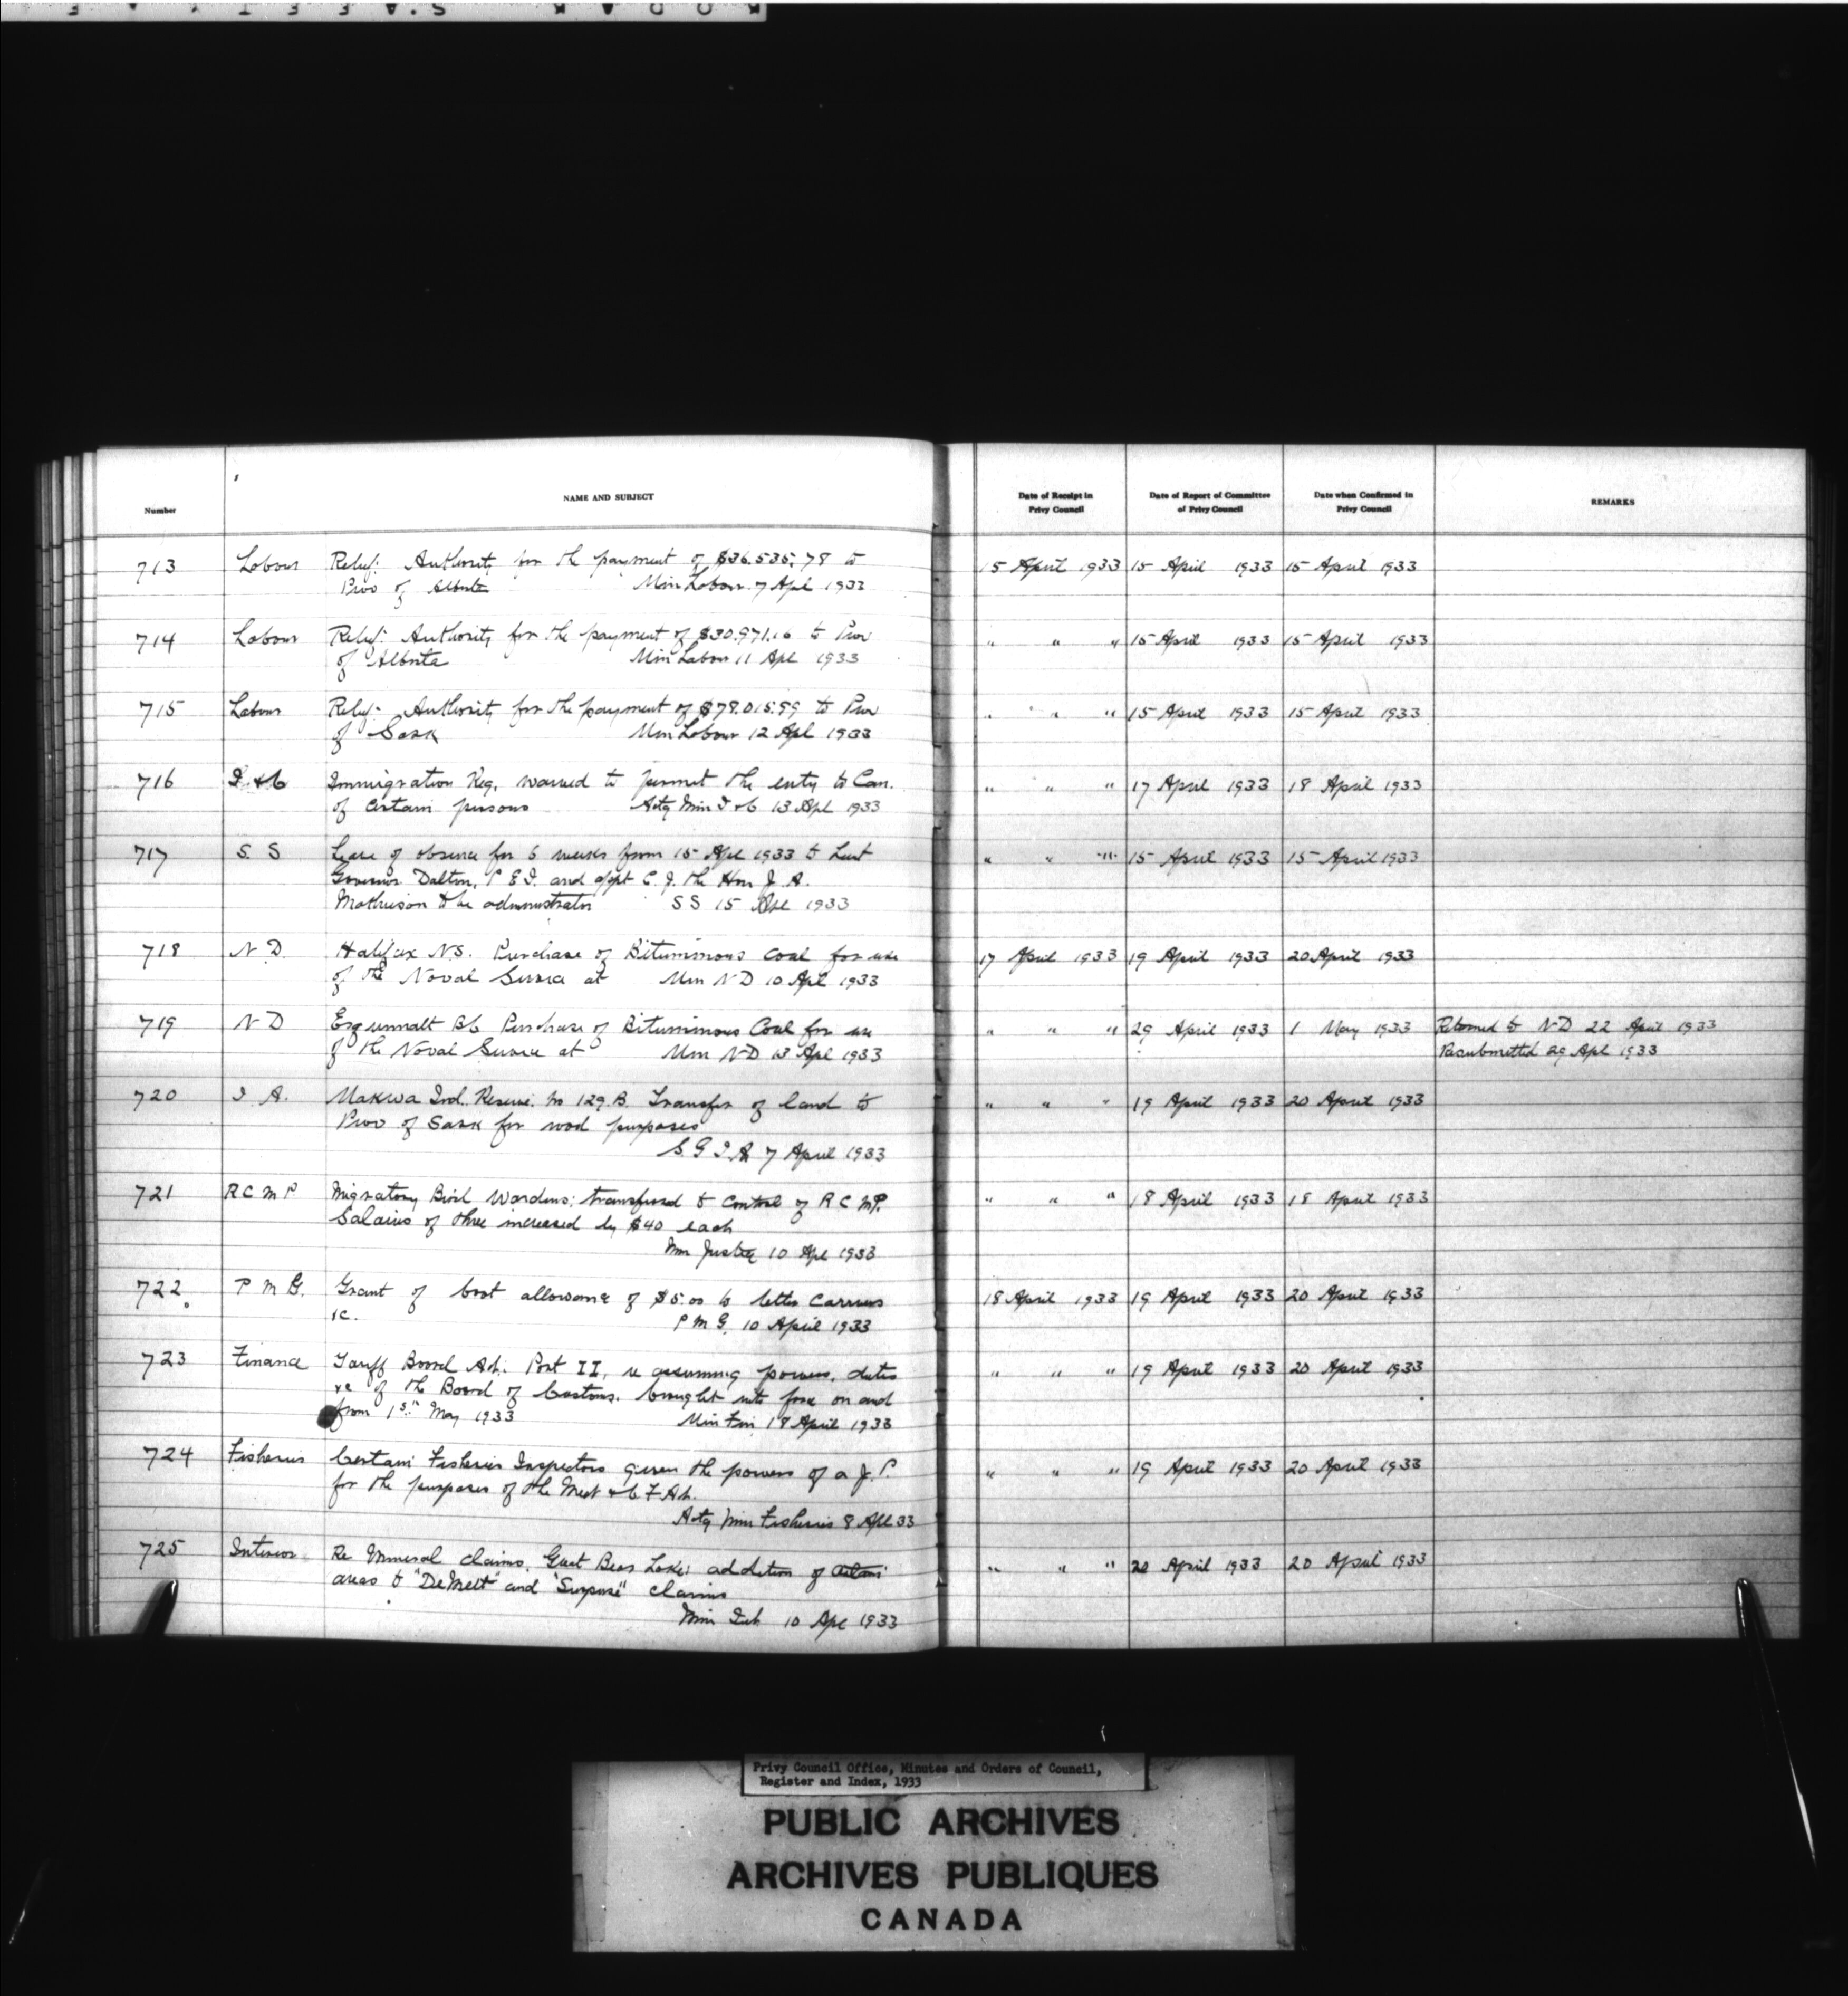 KODAK S.A F E T Y A F
NAME AND SUBJECT
Number
Date of Receipt in Privy Council
Date of Report of Committee of Privy Council
Date when Confirmed in Privy Council
REMARKS
713 Labour Relief: Authority for the payment of $36.535.78 to 15 April 1933 15 April 1933 15 April 1933
Prov of Alberta Min Labour 7 Apl 1933
714 Labour Relief: Authority for the payment of $30.971.16 to Prov " " " 15 April 1933 15 April 1933
of Alberta Min Labour 11 Apl 1933
715 Labour Relief: Authority for the payment of $78.015.99 to Prov " " " 15 April 1933 15 April 1933
of Sask Min Labour 12 Apl 1933
716 I & C Immigration Reg. waived to permit the entry to Can. " " " 17 April 1933 18 April 1933
of certain persons Actg Min I & C 13 Apl 1933
717 S. S Leave of absence for 6 weeks from 15 Apl 1933 to Lieut " " " 15 April 1933 15 April 1933
Governor Dalton, P E I. and appt C. J. the Hon J. A.
Mathieson to be administrator S S 15 Apl 1933
718 N. D. Halifax N.S. Purchase of Bituminous Coal for use 17 April 1933 19 April 1933 20 April 1933
of the Naval Service at Min N D 10 Apl 1933
719 N D Esquimalt BC Purchase of Bituminous Coal for use " " " 29 April 1933 1 May 1933 Returned to N D 22 April 1933
of the Naval Service at Min N D 13 Apl 1933 Resubmitted 29 Apl 1933
720 I A. Makwa Ind. Reserve. No 129.B. Transfer of land to " " " 19 April 1933 20 April 1933
Prov of Sask for road purposes
S. G I. A 7 April 1933
721 R C M P Migratory Bird Wardens: transferred to control of R C M P. " " " 18 April 1933 18 April 1933
Salaries of three increased by $40 each
Min Justice 10 Apl 1933
722. P M G. Grant of boot allowance of $5.00 to letter carriers 18 April 1933 19 April 1933 20 April 1933
&c. P M G. 10 April 1933
723 Finance Tariff Board Act: Part II, re assuming powers, duties " " " 19 April 1933 20 April 1933
&c of the Board of Customs. brought into force on and
from 1st May 1933 Min Fin 18 April 1933
724 Fisheries Certain Fisheries Inspectors given the powers of a J. P. " " " 19 April 1933 20 April 1933
for the purposes of the Meat & C F Act.
Actg Min Fisheries 8 Apl 33
725 Interior Re Mineral claims. Great Bear Lake: addition of certain " " " 20 April 1933 20 April 1933
areas to "DeMelt" and "Surprise" claims
Min Int 10 Apl 1933
Privy Council Office, Minutes and Orders of Council,
Register and Index, 1933
PUBLIC ARCHIVES
ARCHIVES PUBLIQUES
CANADA